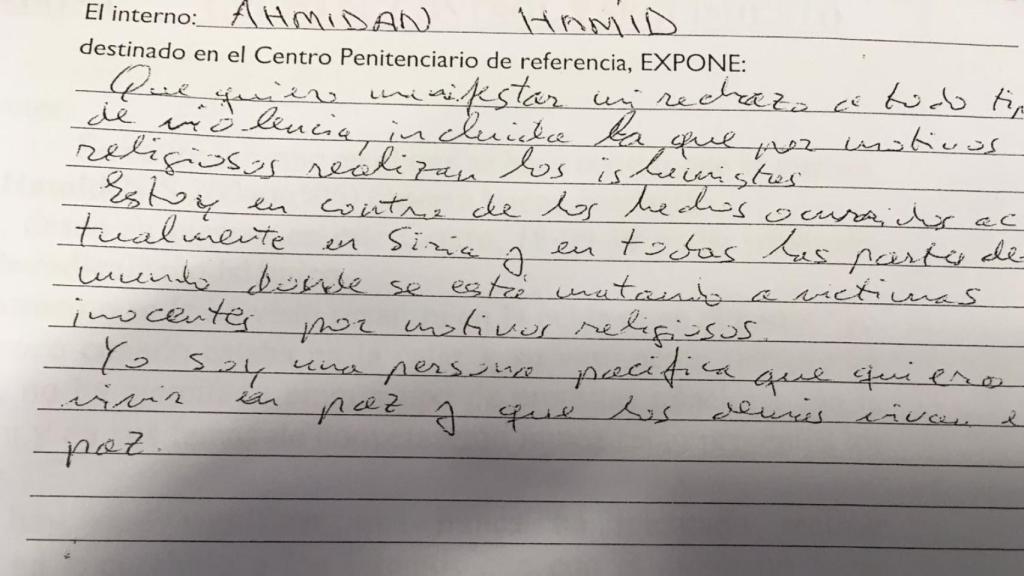 El interno: AHMIDAN HAMID
destinado en el Centro Penitenciario de referencia, EXPONE:
Que quiero manifestar mi rechazo a todo tip
de violencia, incluida la que por motivos
religiosos realizan los islamistas
Estoy en contra de los hechos ocurridos ac
tualmente en Siria y en todas las partes de
mundo donde se está matando a victimas
inocentes por motivos religiosos.
Yo soy una persona pacifica que quiero
vivir en paz y que los demás vivan e
paz.